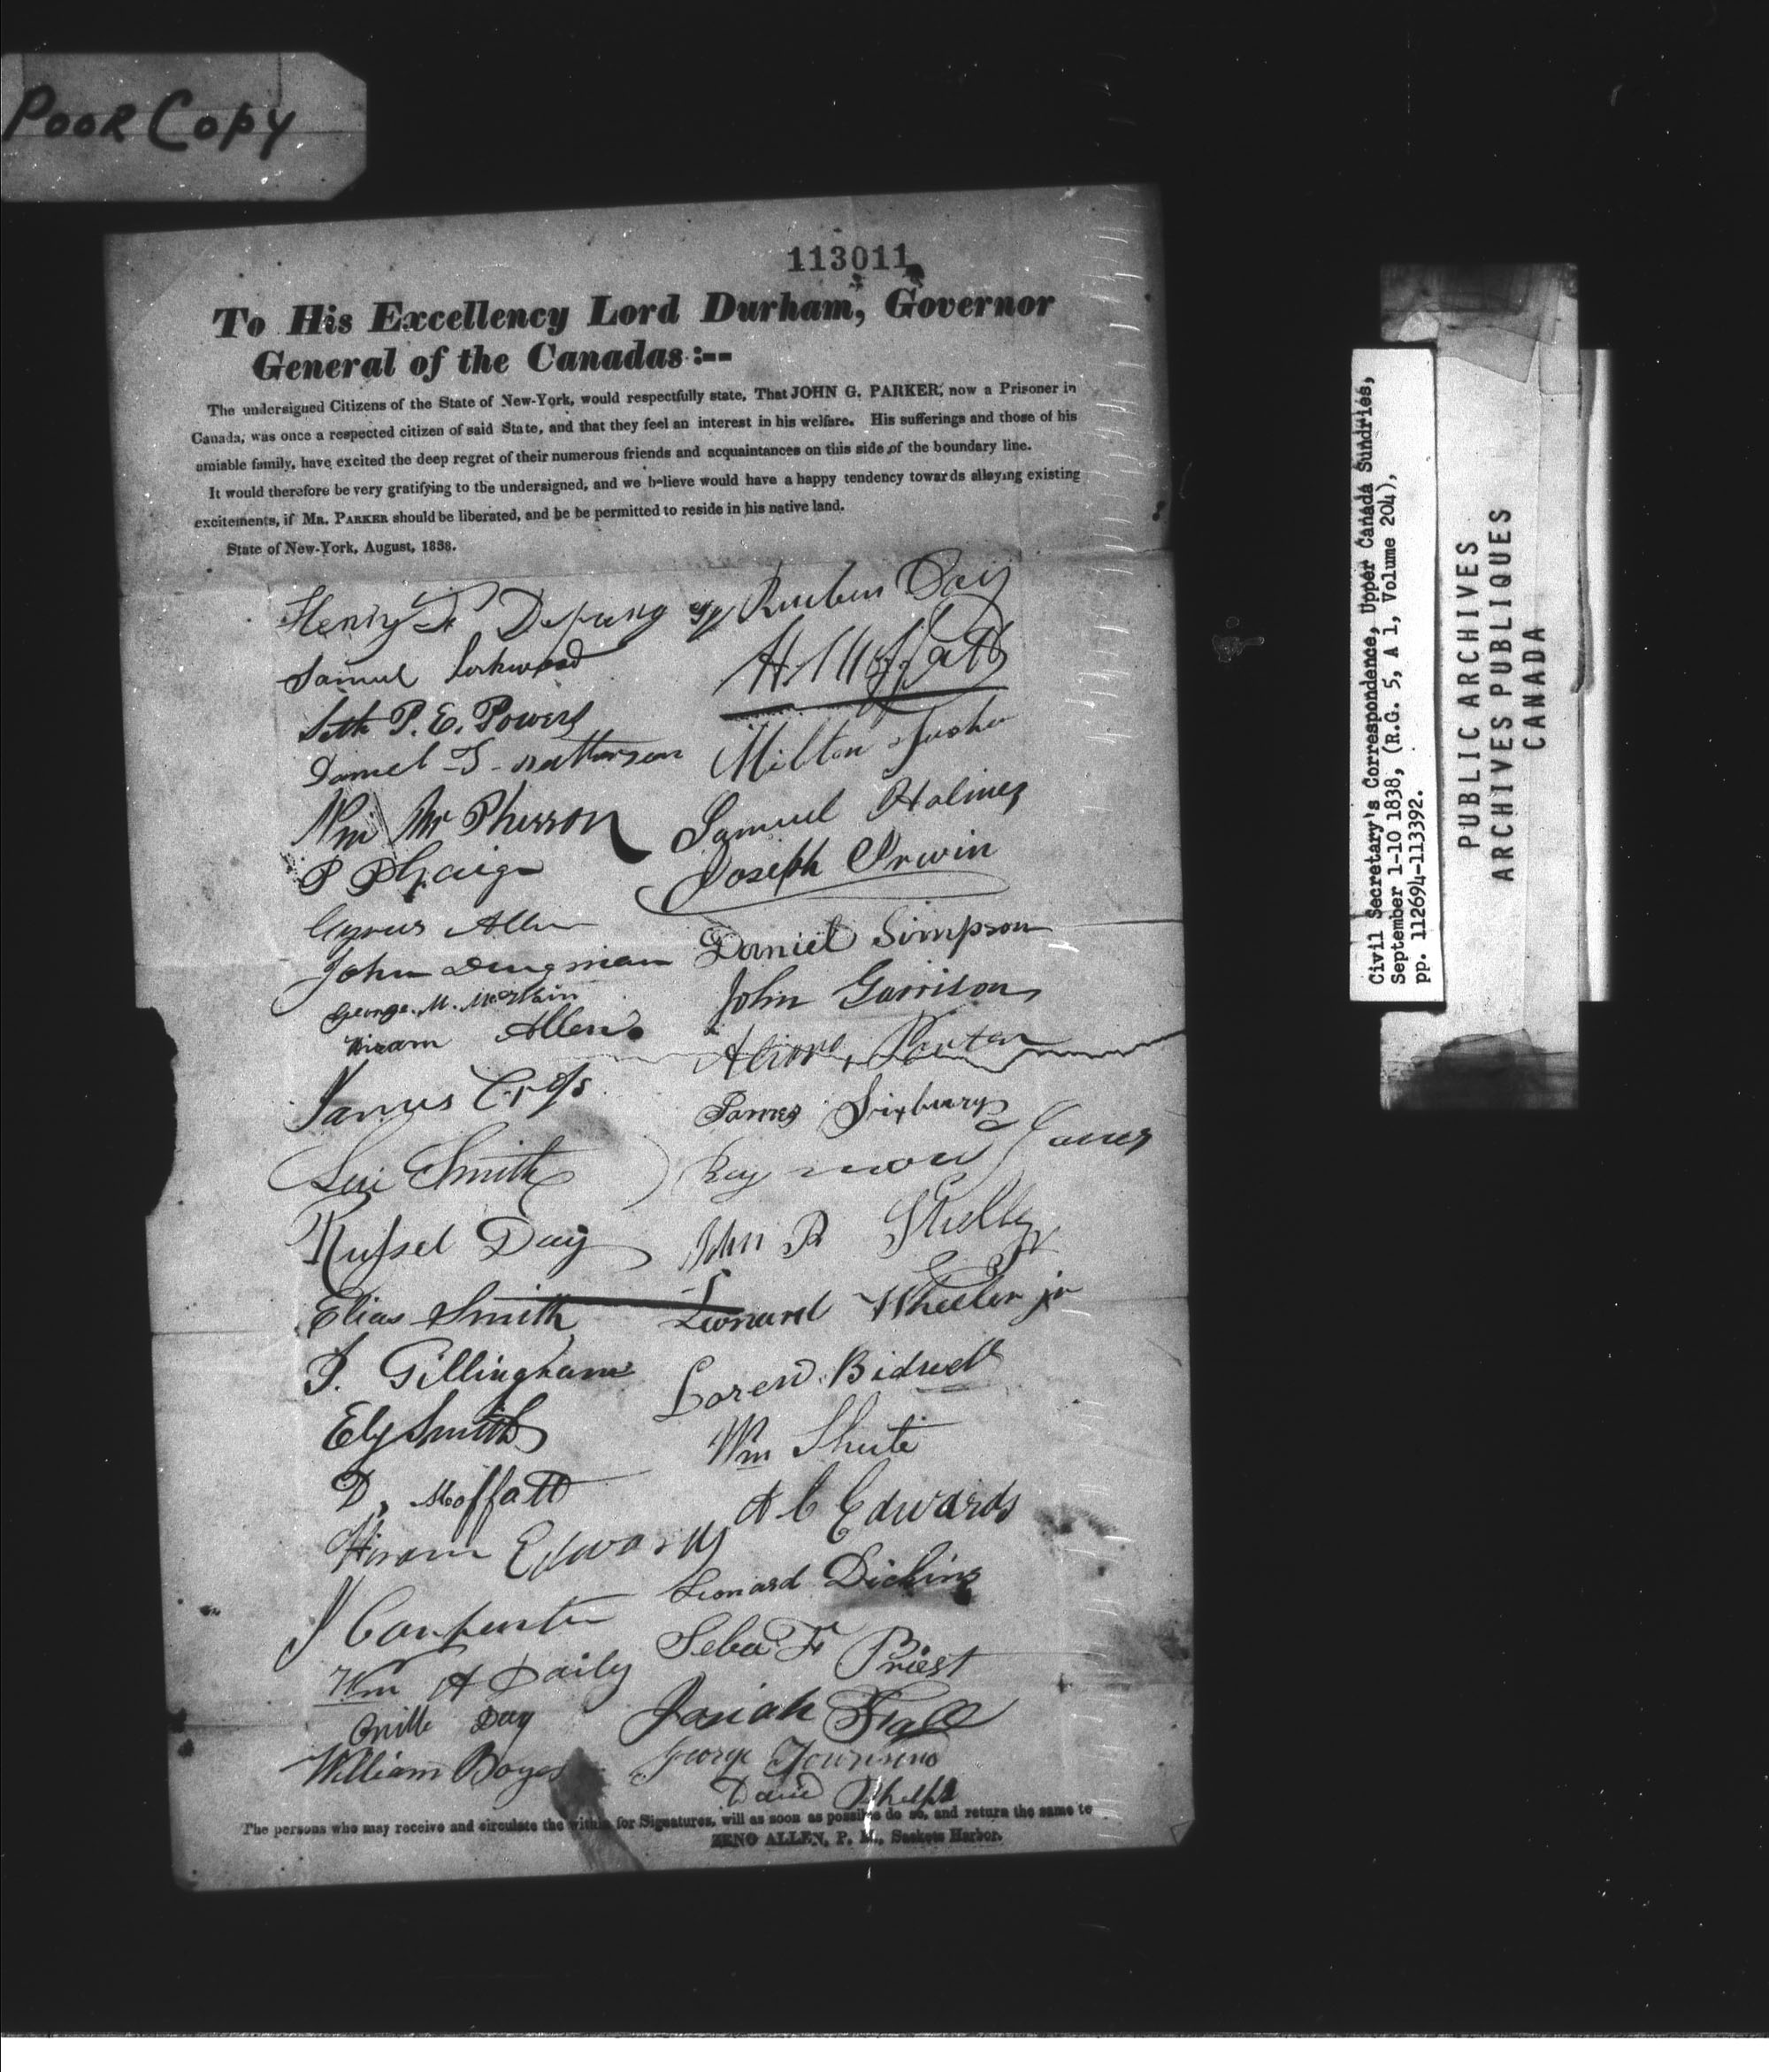 Poor Copy
113011
To His Excellency Lord Durham, Governor
General of the Canadas:--
The undersigned Citizens of the State of New-York, would respectfully state, That JOHN G. PARKER, now a Prisoner in
Canada, was once a respected citizen of said State, and that they feel an interest in his welfare. His sufferings and those of his
amiable family, have excited the deep regret of their numerous friends and acquaintances on this side of the boundary line.
It would therefore be very gratifying to the undersigned, and we believe would have a happy tendency towards allaying existing
excitements, if MR. PARKER should be liberated, and he be permitted to reside in his native land.
State of New-York, August, 1838.
Henry
Samuel
Seth P. E. Powers
Daniel
Wm
P P
Cyrus Allen
John Dingman
George. M.
Hiram Allen
James
Levi Smith
Russel Day
Elias Smith
Gillingham
Ely Smith
D. Moffatt
Hiram Edwards
J Carpenter
Wm A Daily
Orville Day
William Boyes
Reuben Day
H. Moffatt
Milton
Samuel Holmes
Joseph Irwin
Daniel Simpson
John Garrison
James Sixbury
John
Leonard Wheeler jr
Loren Bidwell
Wm Shute
A C Edwards
Leonard Dickins
Seba F Priest
Josiah Hall
George Townsend
David Phelps
The persons who may receive and circulate the within for Signatures, will as soon as possible do so, and return the same to
ZENO ALLEN, P. M., Sackets Harbor.
Civil Secretary's Correspondence, Upper Canada Sundries,
September 1-10 1838, (R.G. 5, A 1, Volume 204),
pp. 112694-113392.
PUBLIC ARCHIVES
ARCHIVES PUBLIQUES
CANADA